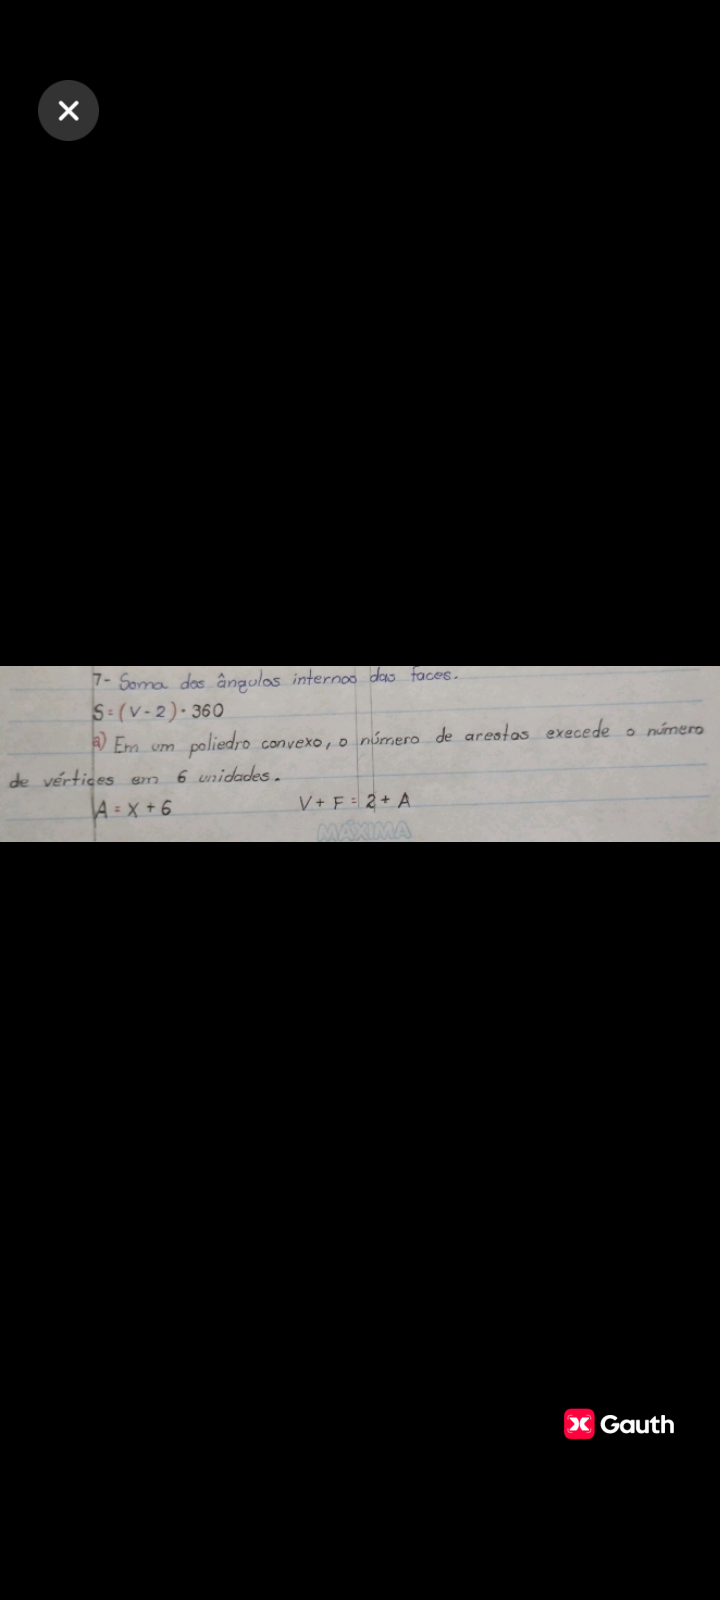 7- Soma dos ângulos internos das faces.
S = (V - 2) · 360
a) Em um poliedro convexo, o número de arestas execede o número
de vértices em 6 unidades.
A = X + 6 V + F = 2 + A
MÁXIMA
Gauth